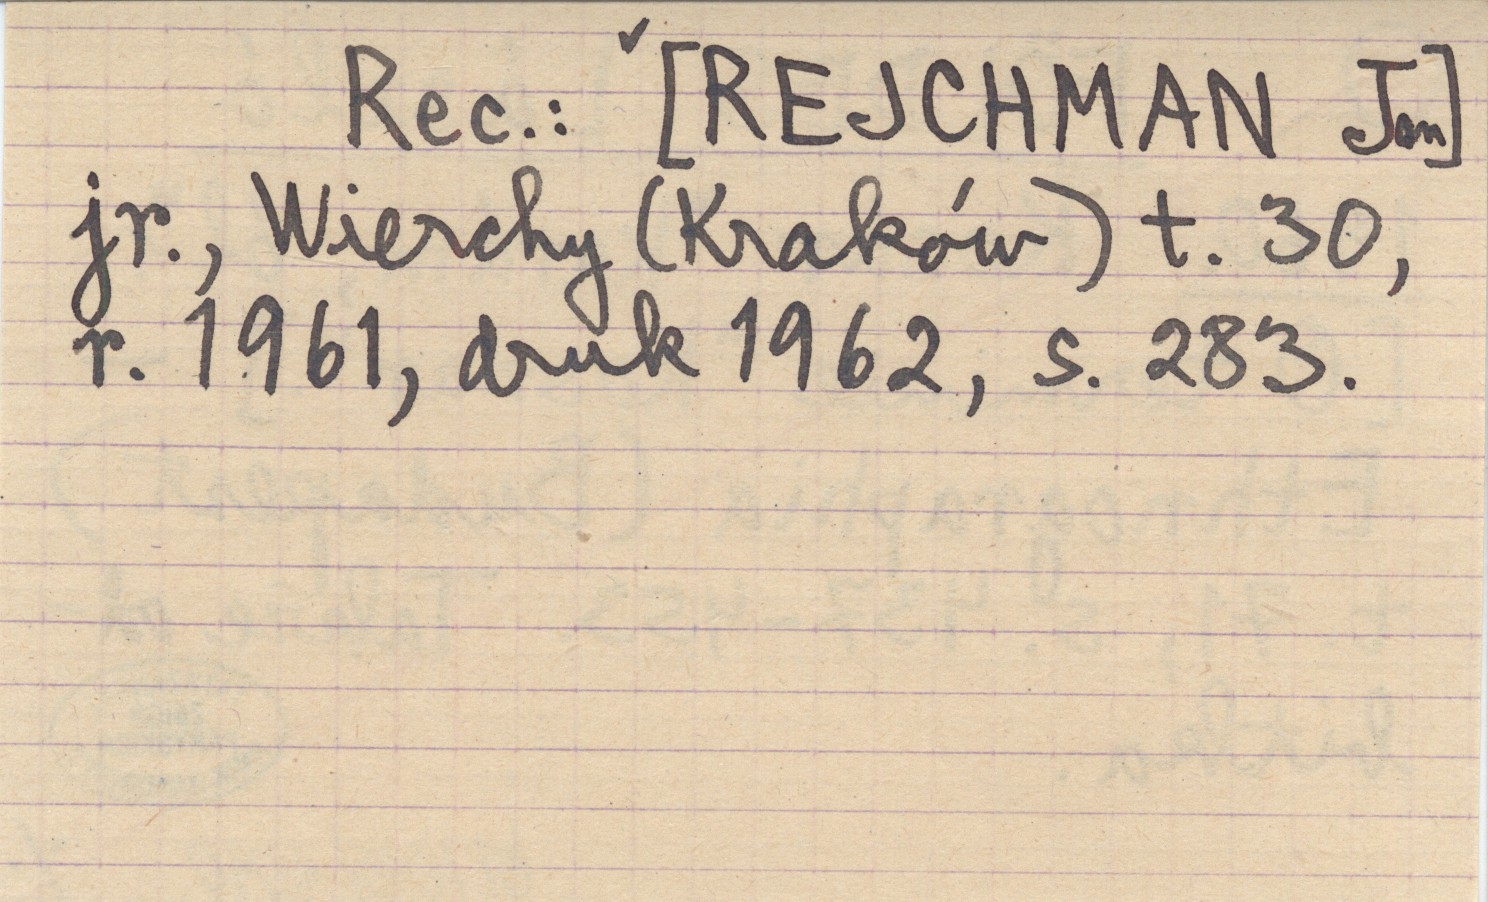 Rec.: ✓[REJCHMAN Jan]
jr., Wierchy (Kraków) t. 30,
r. 1961, druk 1962, s. 283.